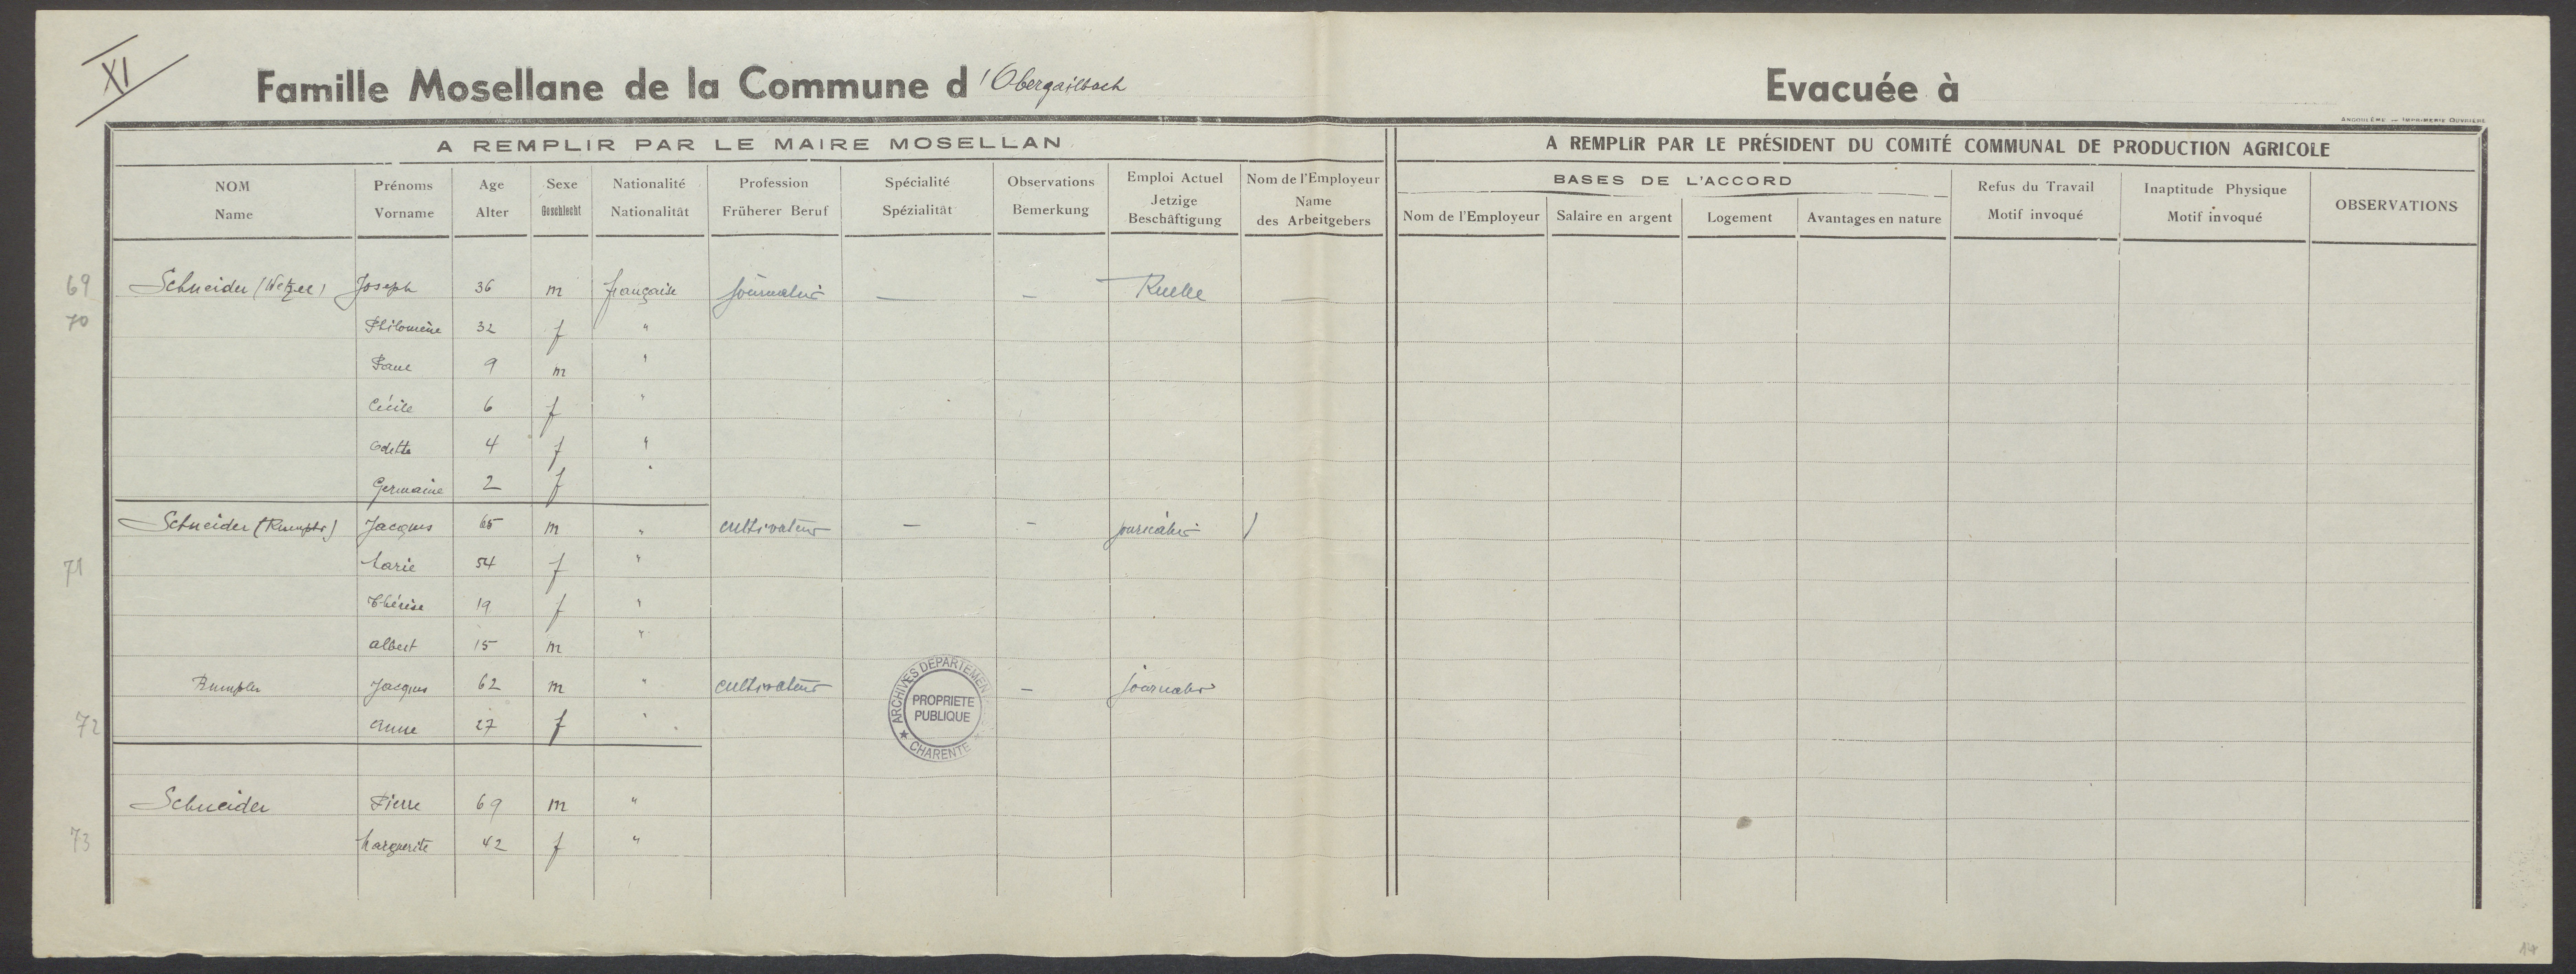 XI
Famille Mosellane de la Commune d'Obergailbach
Evacuée à
ANGOULÊME — IMPRIMERIE OUVRIÈRE
A REMPLIR PAR LE MAIRE MOSELLAN
A REMPLIR PAR LE PRÉSIDENT DU COMITÉ COMMUNAL DE PRODUCTION AGRICOLE
NOM Name
Prénoms Vorname
Age Alter
Sexe Geschlecht
Nationalité Nationalität
Profession Früherer Beruf
Spécialité Spézialität
Observations Bemerkung
Emploi Actuel Jetzige Beschäftigung
Nom de l'Employeur Name des Arbeitgebers
BASES DE L'ACCORD
Nom de l'Employeur
Salaire en argent
Logement
Avantages en nature
Refus du Travail Motif invoqué
Inaptitude Physique Motif invoqué
OBSERVATIONS
69 Schneider (Wetzel) Joseph 36 m française journalier — — Ruelle —
70 Philomène 32 f "
Paul 9 m "
Cécile 6 f "
Odette 4 f "
Germaine 2 f "
Schneider (Rumpler) Jacques 65 m " cultivateur — — journalier /
71 Marie 54 f "
Thérèse 19 f "
Albert 15 m "
Rumpler Jacques 62 m " cultivateur — journalier
72 Anne 27 f "
ARCHIVES DEPARTEMEN
PROPRIETE
PUBLIQUE
★ CHARENTE ★
Schneider Pierre 69 m "
73 Marguerite 42 f "
14